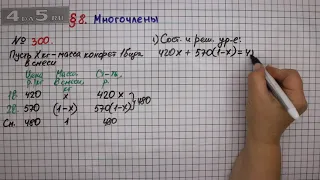 4 at 5.ru
§8. Многочлены
№ 300.
Пусть X кг - масса конфет 1 вида
в смеси
Цена р/кг Масса в смеси Ст-ть, р.
1в. 420 x 420x
2в. 570 (1-x) 570(1-x)
480
См. 480 1 480
1) Сост. и реш. ур-е:
420x + 570(1-x) = 4